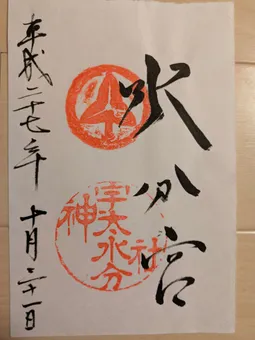 水分宮
宇太水分
神社
平成二七年 十月二十一日